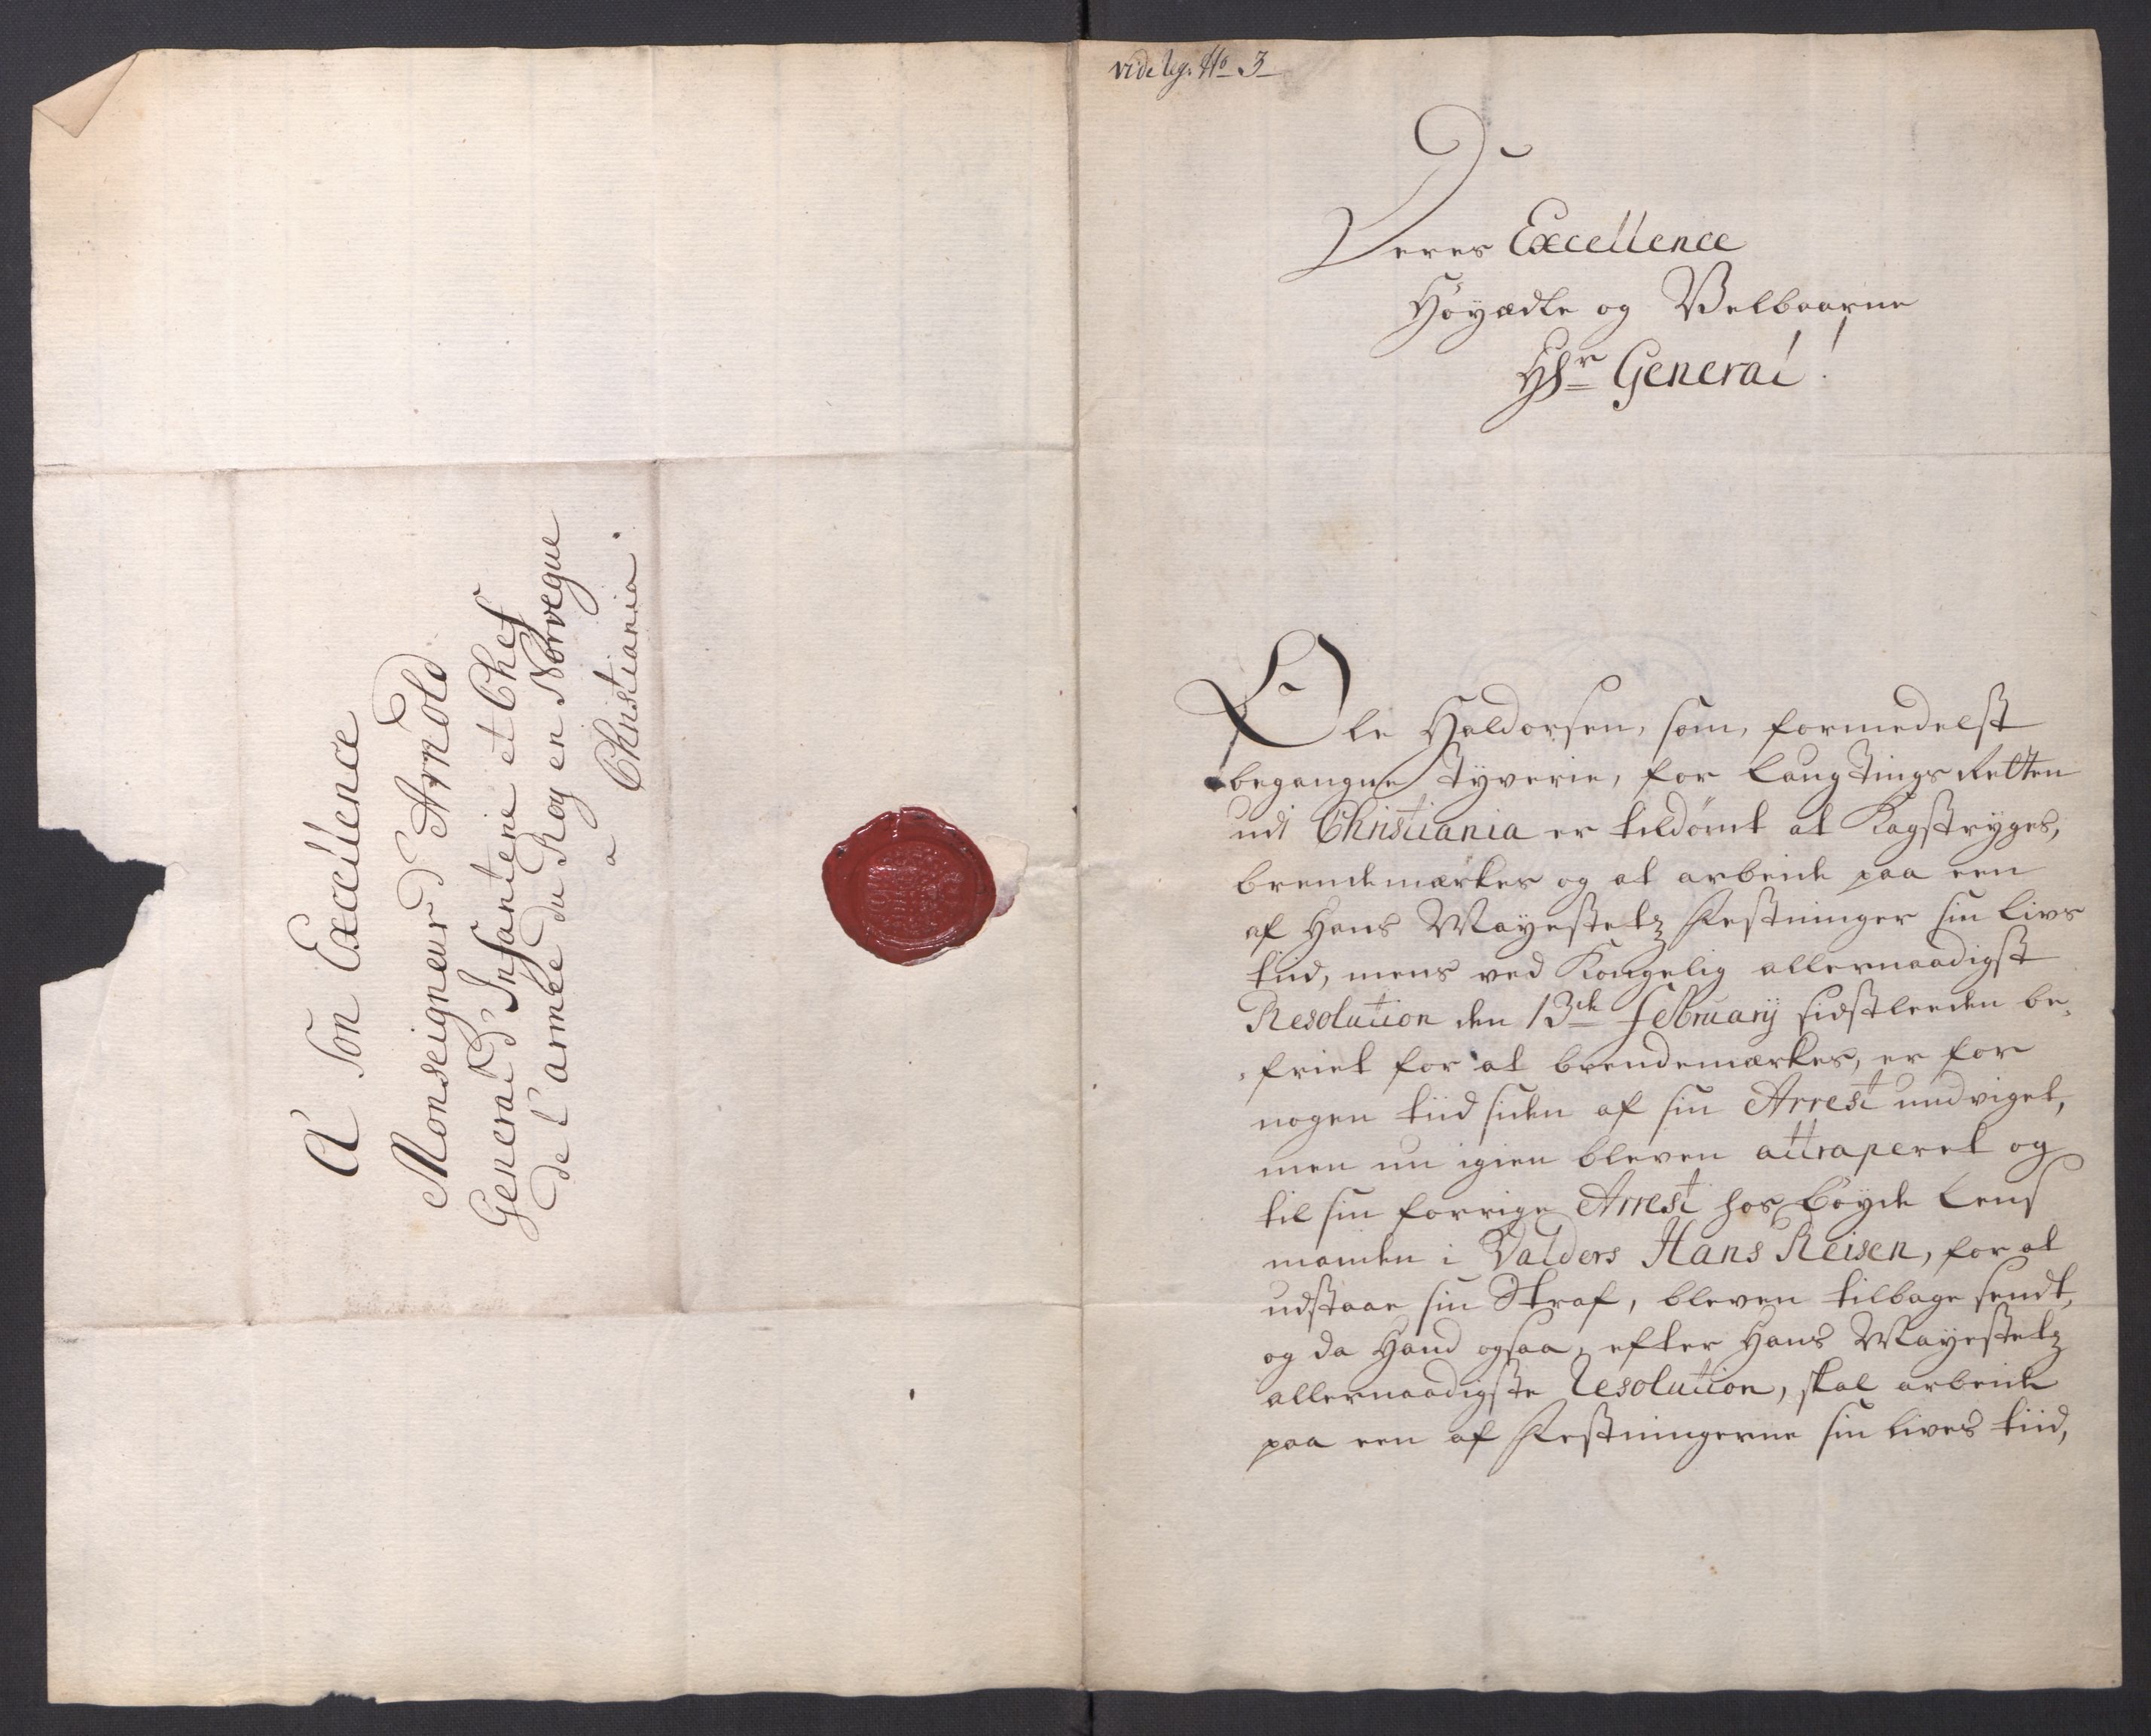 A Son Excellence
Monseigneur D'Arnold
General D'Infanterie et Chef
de l'armée du Roy en Norvegue
a
Christiania.
vide No 3
Deres Excellence
Høyædle og Velbaarne
Hr General!
Ole Haldorsen, som, formedelst
begangne Tyverie, for LaugTingsRetten
udi Christiania er tildømt at Kagstryges,
brendemærkes og at arbeide paa een
af Hans Mayestetz Festninger sin Livs
tiid, mens ved Kongelig allernaadigst
Resolution den 13de February sidstleeden be-
friet for at brendemærkes, er for
nogen tiid siden af sin Arrest undviget,
men nu igien bleven attraperet og
til sin forrige Arrest hos Bøyde Lens
manden i Valders Hans Reisen, for at
udstaae sin Straf, bleven tilbage sendt,
og da Hand ogsaa, efter Hans Mayestetz
allernaadigste Resolution, skal arbeide
paa een af Festningerne sin Lives tiid,